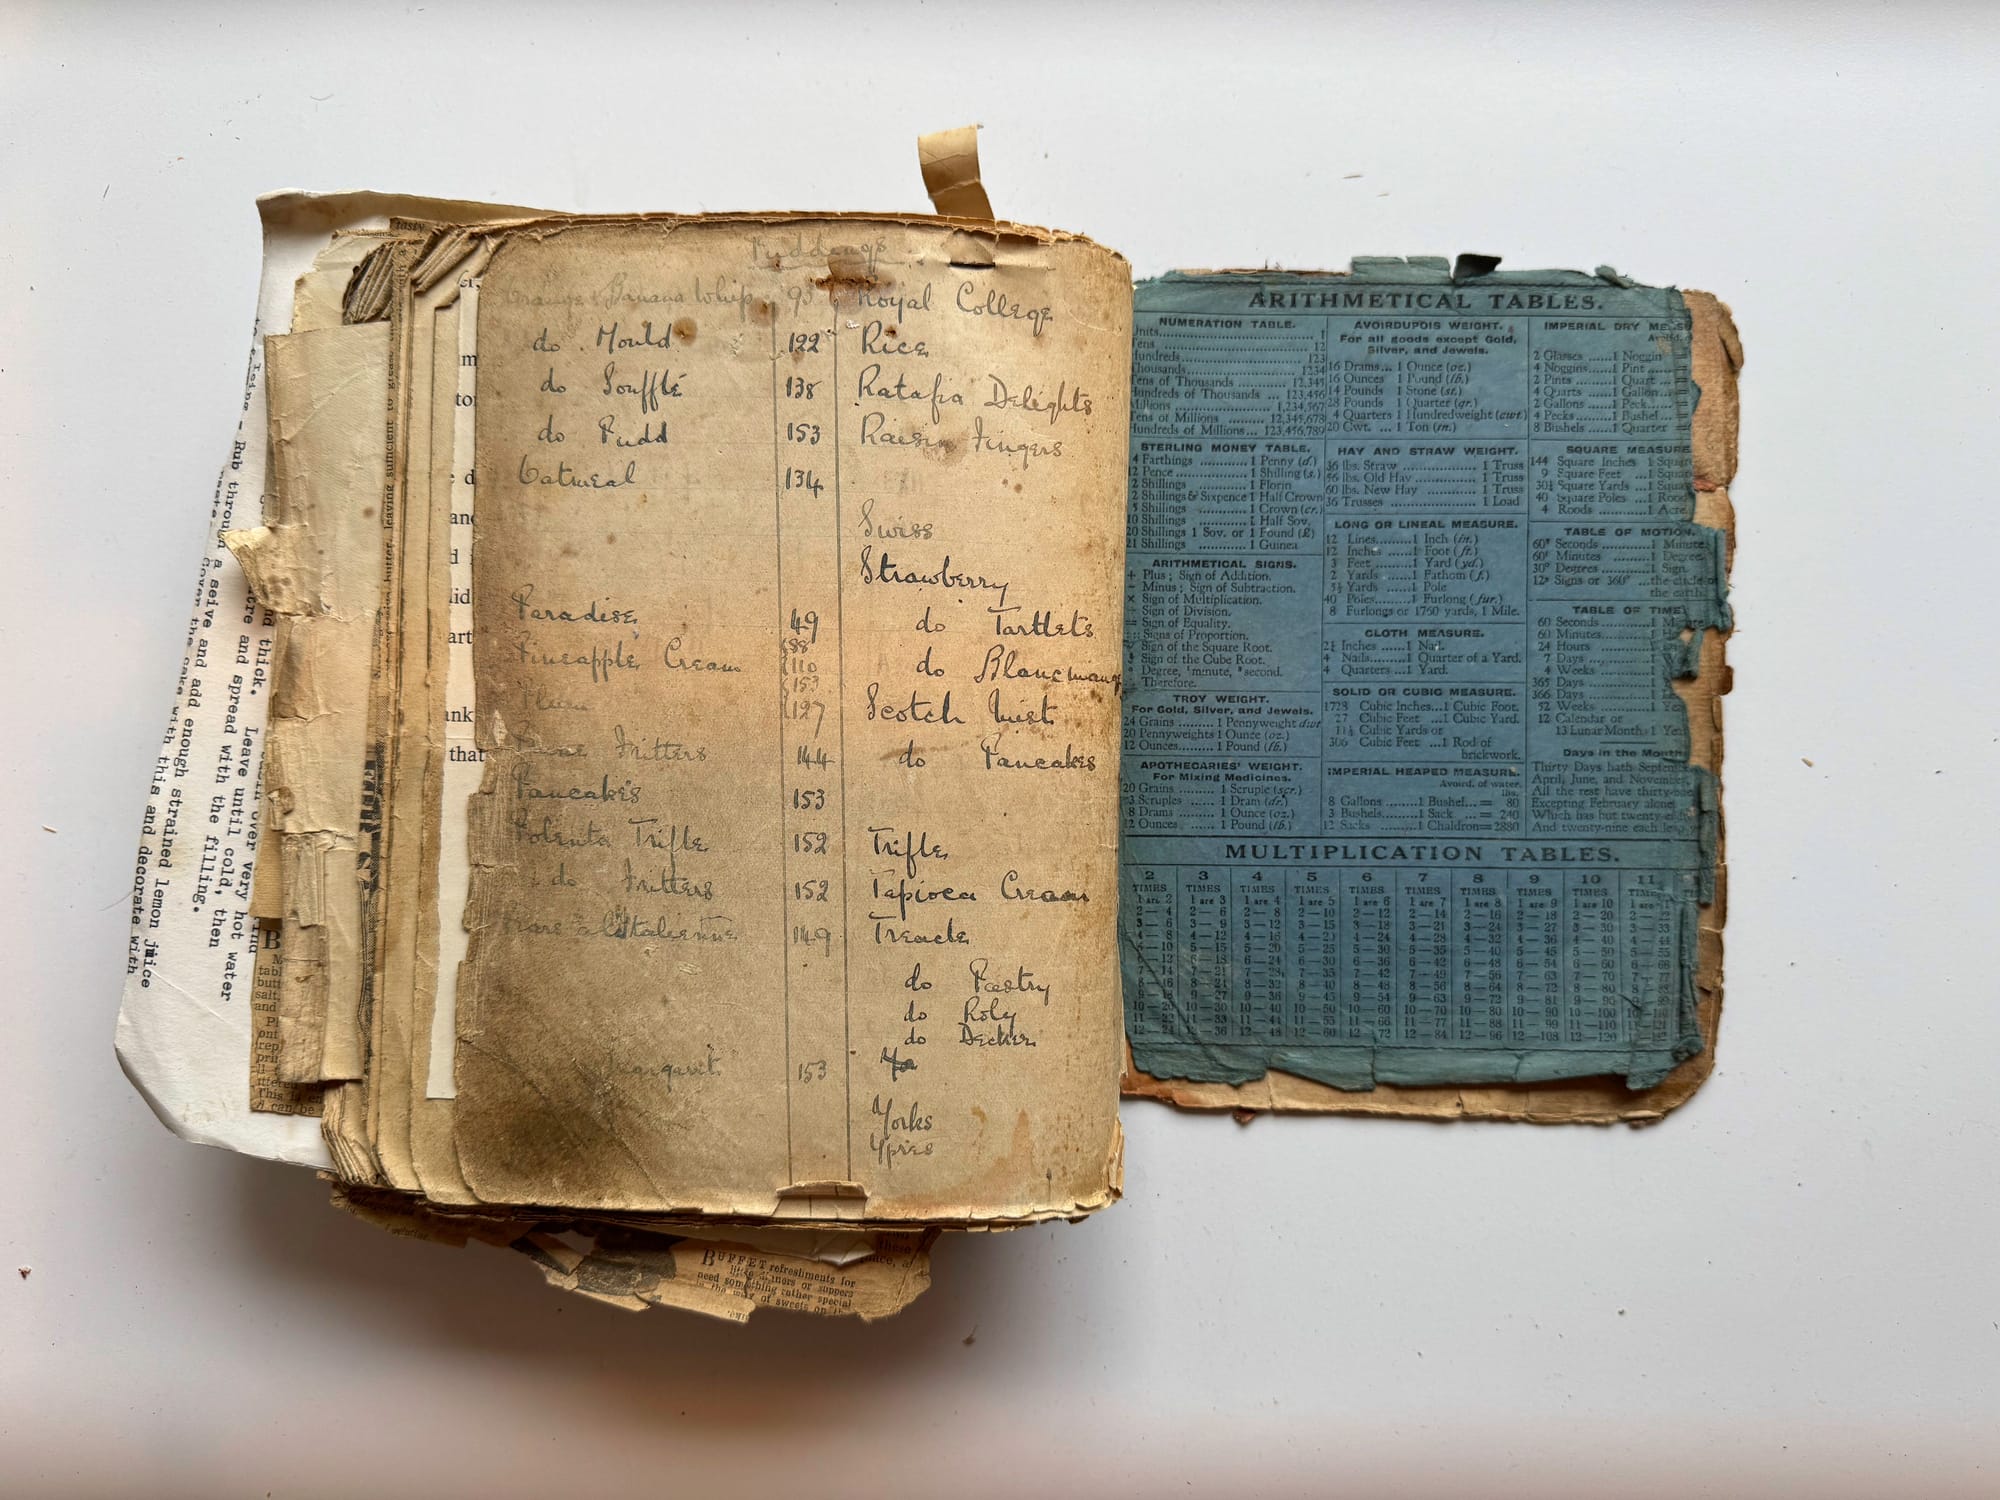 Puddings
Orange & Banana Whip 93
do Mould 122
do Soufflé 138
do Pudd 153
Oatmeal 134
Paradise 49
Pineapple Cream 88
110
153
Plum 127
Fritters 144
Pancakes 153
Polenta Trifle 152
do Fritters 152
149
153
Royal College
Rice
Ratafia Delights
Raisin Fingers
Swiss
Strawberry
do Tartlets
do Blancmang
Scotch Mist
do Pancakes
Trifle
Tapioca Cream
Treacle
do Pastry
do Roly
do Decker
Yorks
Ypres
ARITHMETICAL TABLES.
NUMERATION TABLE.
Units 1
Tens 12
Hundreds 123
Thousands 1234
Tens of Thousands 12,345
Hundreds of Thousands 123,456
Millions 1,234,567
Tens of Millions 12,345,678
Hundreds of Millions 123,456,789
STERLING MONEY TABLE.
4 Farthings 1 Penny (d.)
12 Pence 1 Shilling (s.)
2 Shillings 1 Florin
2 Shillings & Sixpence 1 Half Crown
5 Shillings 1 Crown (cr.)
10 Shillings 1 Half Sov.
20 Shillings 1 Sov. or 1 Pound (£)
21 Shillings 1 Guinea
ARITHMETICAL SIGNS.
+ Plus; Sign of Addition.
- Minus; Sign of Subtraction.
× Sign of Multiplication.
Sign of Division.
= Sign of Equality.
Signs of Proportion.
Sign of the Square Root.
Sign of the Cube Root.
Degree, 'minute, "second.
Therefore.
TROY WEIGHT.
For Gold, Silver, and Jewels.
24 Grains 1 Pennyweight dwt
20 Pennyweights 1 Ounce (oz.)
12 Ounces 1 Pound (lb.)
APOTHECARIES' WEIGHT.
For Mixing Medicines.
20 Grains 1 Scruple (scr.)
3 Scruples 1 Dram (dr.)
8 Drams 1 Ounce (oz.)
12 Ounces 1 Pound (lb.)
AVOIRDUPOIS WEIGHT.
For all goods except Gold,
Silver, and Jewels.
16 Drams 1 Ounce (oz.)
16 Ounces 1 Pound (lb.)
14 Pounds 1 Stone (st.)
28 Pounds 1 Quarter (qr.)
4 Quarters 1 Hundredweight (cwt.)
20 Cwt. 1 Ton (tn.)
HAY AND STRAW WEIGHT.
36 lbs. Straw 1 Truss
56 lbs. Old Hay 1 Truss
60 lbs. New Hay 1 Truss
36 Trusses 1 Load
LONG OR LINEAL MEASURE.
12 Lines 1 Inch (in.)
12 Inches 1 Foot (ft.)
3 Feet 1 Yard (yd.)
2 Yards 1 Fathom (f.)
5½ Yards 1 Pole
40 Poles 1 Furlong (fur.)
8 Furlongs or 1760 yards, 1 Mile.
CLOTH MEASURE.
2¼ Inches 1 Nail.
4 Nails 1 Quarter of a Yard.
4 Quarters 1 Yard.
SOLID OR CUBIC MEASURE.
1728 Cubic Inches 1 Cubic Foot.
27 Cubic Feet 1 Cubic Yard.
11⅓ Cubic Yards or
306 Cubic Feet 1 Rod of
brickwork.
IMPERIAL HEAPED MEASURE.
Avoird. of water.
lbs.
8 Gallons 1 Bushel = 80
3 Bushels 1 Sack = 240
12 Sacks 1 Chaldron = 2880
IMPERIAL DRY MEASU
2 Glasses 1 Noggin
4 Noggins 1 Pint
2 Pints 1 Quart
4 Quarts 1 Gallon
2 Gallons 1 Peck
4 Pecks 1 Bushel
8 Bushels 1 Quarter
SQUARE MEASURE
144 Square Inches 1 Square
9 Square Feet 1 Square
30¼ Square Yards 1 Square
40 Square Poles 1 Rood
4 Roods 1 Acre
TABLE OF MOTION.
60" Seconds 1 Minute
60' Minutes 1 Degree
30° Degrees 1 Sign.
12 Signs or 360° the circle of
the earth.
TABLE OF TIME
60 Seconds 1 Minute
60 Minutes 1 H
24 Hours
7 Days
4 Weeks
365 Days
366 Days
52 Weeks 1 Yea
12 Calendar or
13 Lunar Month 1 Yea
Days in the Month
Thirty Days hath Septem
April, June, and November
All the rest have thirty-one
Excepting February alone
Which has but twenty-eight
And twenty-nine each leap y
MULTIPLICATION TABLES.
2 3 4 5 6 7 8 9 10 11
TIMES TIMES TIMES TIMES TIMES TIMES TIMES TIMES TIMES TIMES
1 are 2 1 are 3 1 are 4 1 are 5 1 are 6 1 are 7 1 are 8 1 are 9 1 are 10
2—4 2—6 2—8 2—10 2—12 2—14 2—16 2—18 2—20 2—22
3—6 3—9 3—12 3—15 3—18 3—21 3—24 3—27 3—30 3—33
4—8 4—12 4—16 4—20 4—24 4—28 4—32 4—36 4—40 4—44
5—10 5—15 5—20 5—25 5—30 5—35 5—40 5—45 5—50 5—55
6—12 6—18 6—24 6—30 6—36 6—42 6—48 6—54 6—60 6—66
7—14 7—21 7—28 7—35 7—42 7—49 7—56 7—63 7—70 7—77
8—16 8—24 8—32 8—40 8—48 8—56 8—64 8—72 8—80 8—88
9—18 9—27 9—36 9—45 9—54 9—63 9—72 9—81 9—90 9—99
10—20 10—30 10—40 10—50 10—60 10—70 10—80 10—90 10—100
11—22 11—33 11—44 11—55 11—66 11—77 11—88 11—99 11—110
12—24 12—36 12—48 12—60 12—72 12—84 12—96 12—108 12—120
Rub through a seive and add enough strained lemon juice
cover the cake with this and decorate with
and spread with the filling.
thick. Leave until cold, then
over very hot water
leaving sufficient to grease
tasty
that
BUFFET refreshments for
little dinners or suppers
need something rather special
in the way of sweets on